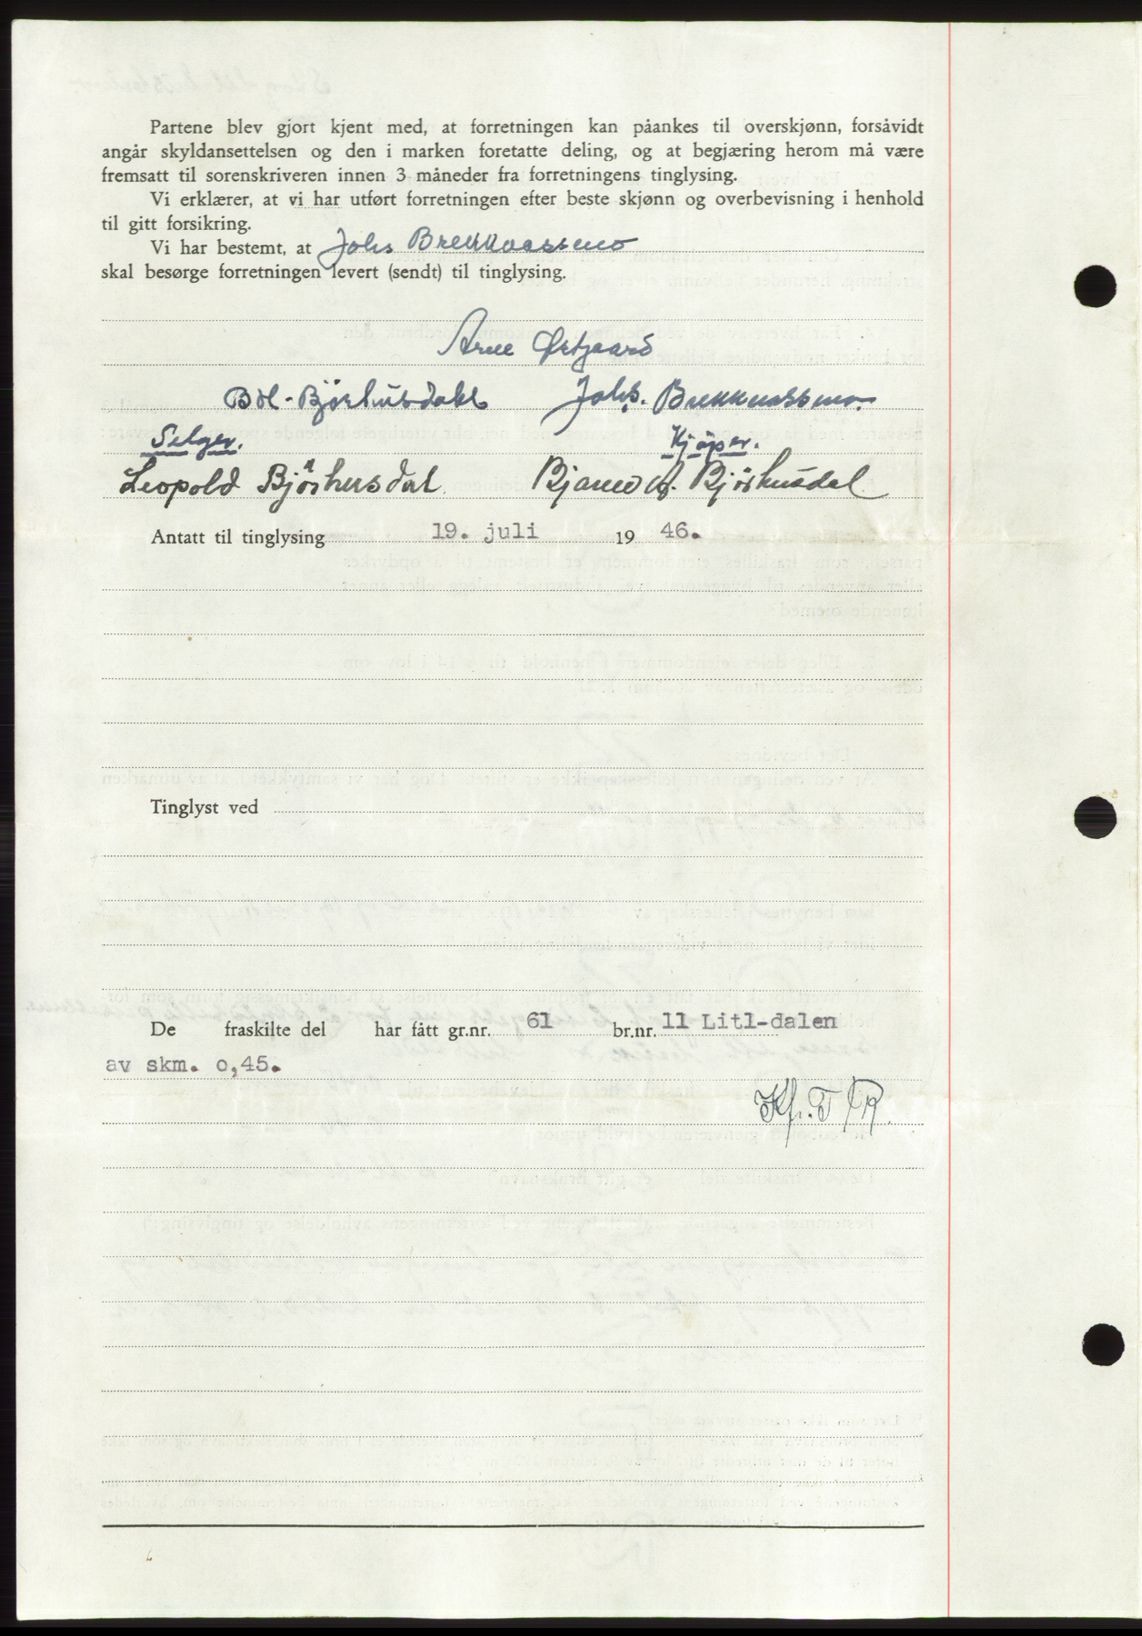 Partene blev gjort kjent med, at forretningen kan påankes til overskjønn, forsåvidt
angår skyldansettelsen og den i marken foretatte deling, og at begjæring herom må være
fremsatt til sorenskriveren innen 3 måneder fra forretningens tinglysing.
Vi erklærer, at vi har utført forretningen efter beste skjønn og overbevisning i henhold
til gitt forsikring.
Vi har bestemt, at Johs Brekkvassmo
skal besørge forretningen levert (sendt) til tinglysing.
Arne Østgaard
Bøl-Bjørhusdahl Johs. Brekkvassmo.
Selger. Kjøper.
Leopold Bjørhusdal Bjarne Bjørhusdal
Antatt til tinglysing 19. juli 19 46.
Tinglyst ved
De fraskilte del har fått gr.nr. 61 br.nr. 11 Litl-dalen
av skm. 0,45.